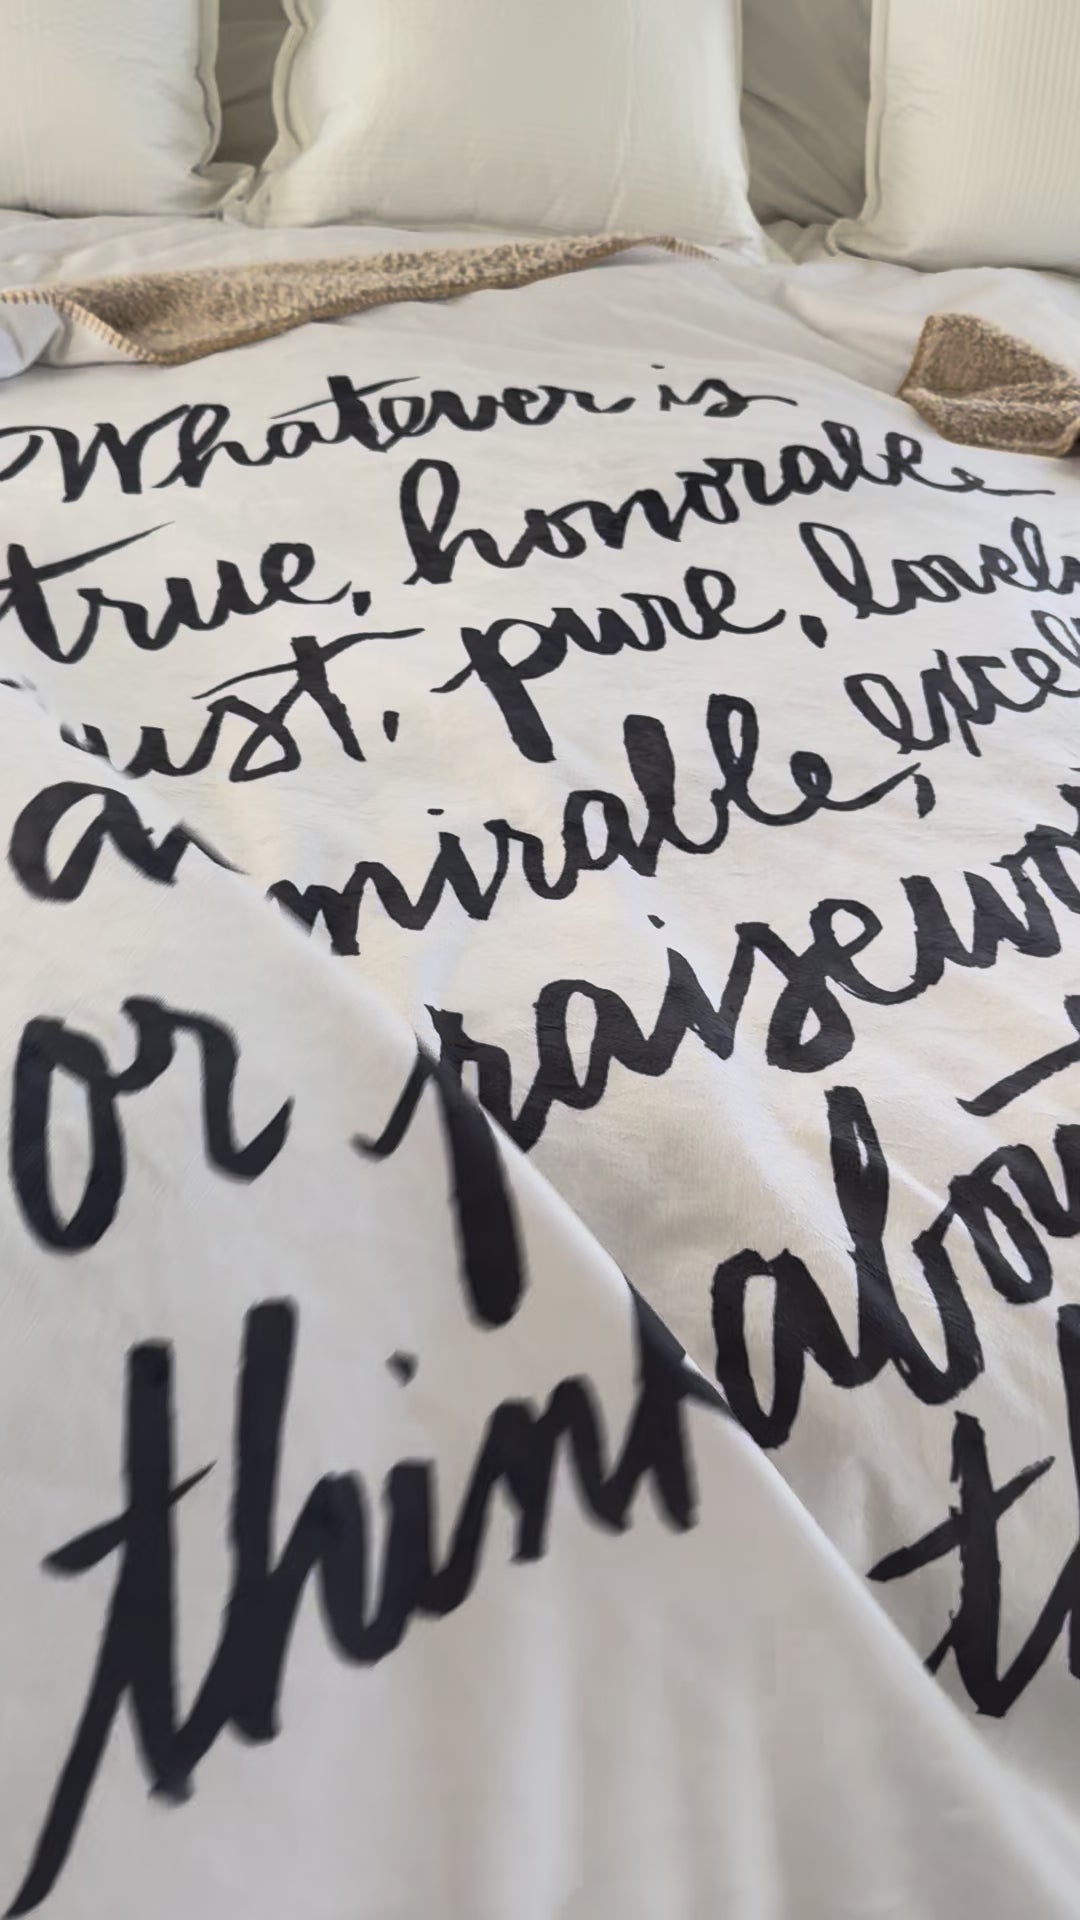 Whatever is
true, honorable
ust, pure, lovely
a mirable, excel
or praisewort
think abou
th